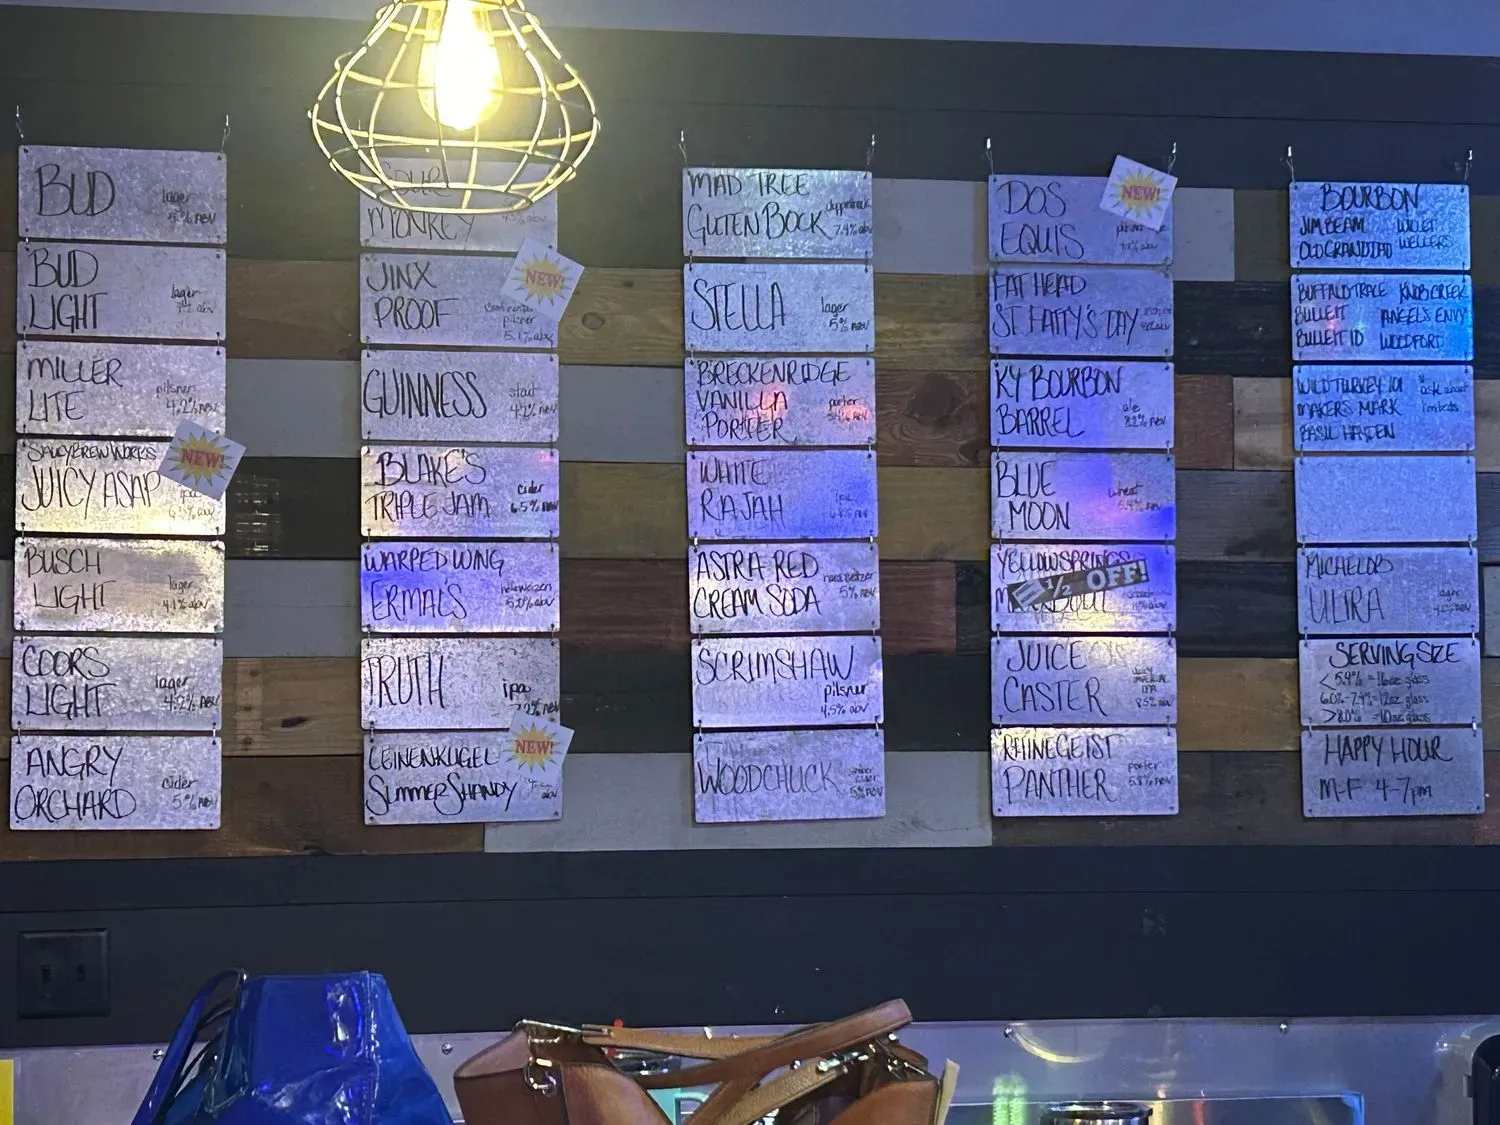 BUD
lager
5% ABV
BUD
LIGHT
lager
abv
MILLER
LITE
pilsner
4.2% ABV
SAUCY BREW WORKS
JUICY ASAP
ipa
NEW!
BUSCH
LIGHT
lager
4.1% abv
COORS
LIGHT
lager
4.2% ABV
ANGRY
ORCHARD
cider
5% ABV
SOUR
MONKEY
abv
JINX
PROOF
continental
pilsner
5.1% abv
NEW!
GUINNESS
stout
4.2% ABV
BLAKE'S
TRIPLE JAM
cider
6.5% ABV
WARPED WING
ERMAL'S
abv
TRUTH
ipa
abv
LEINENKUGEL
SUMMER SHANDY
abv
NEW!
MAD TREE
GLUTEN BOCK
7.4% abv
STELLA
lager
5% ABV
BRECKENRIDGE
VANILLA
PORTER
porter
WHITE
RAJAH
ipa
ASTRA RED
CREAM SODA
hard seltzer
5% ABV
SCRIMSHAW
pilsner
4.5% abv
WOODCHUCK
cider
5% ABV
DOS
EQUIS
NEW!
FAT HEAD
ST FATTY'S DAY
KY BOURBON
BARREL
ale
8.2% ABV
BLUE
MOON
wheat
5.4% ABV
YELLOW SPRINGS
1/2 OFF!
JUICE
CASTER
IPA
8.5% abv
RHINEGEIST
PANTHER
porter
5.8% ABV
BOURBON
JIM BEAM WILLET
OLD GRANDDAD WELLERS
BUFFALO TRACE KNOB CREEK
BULLEIT ANGEL'S ENVY
BULLEIT 10 WOODFORD
WILD TURKEY 101 * ask about
MAKERS MARK limiteds
BASIL HAYDEN
MICHELOB
ULTRA
lager
SERVING SIZE
< 5.9% = 16oz glass
6.0%-7.9% = 12oz glass
> 8.0% = 10oz glass
HAPPY HOUR
M-F 4-7pm